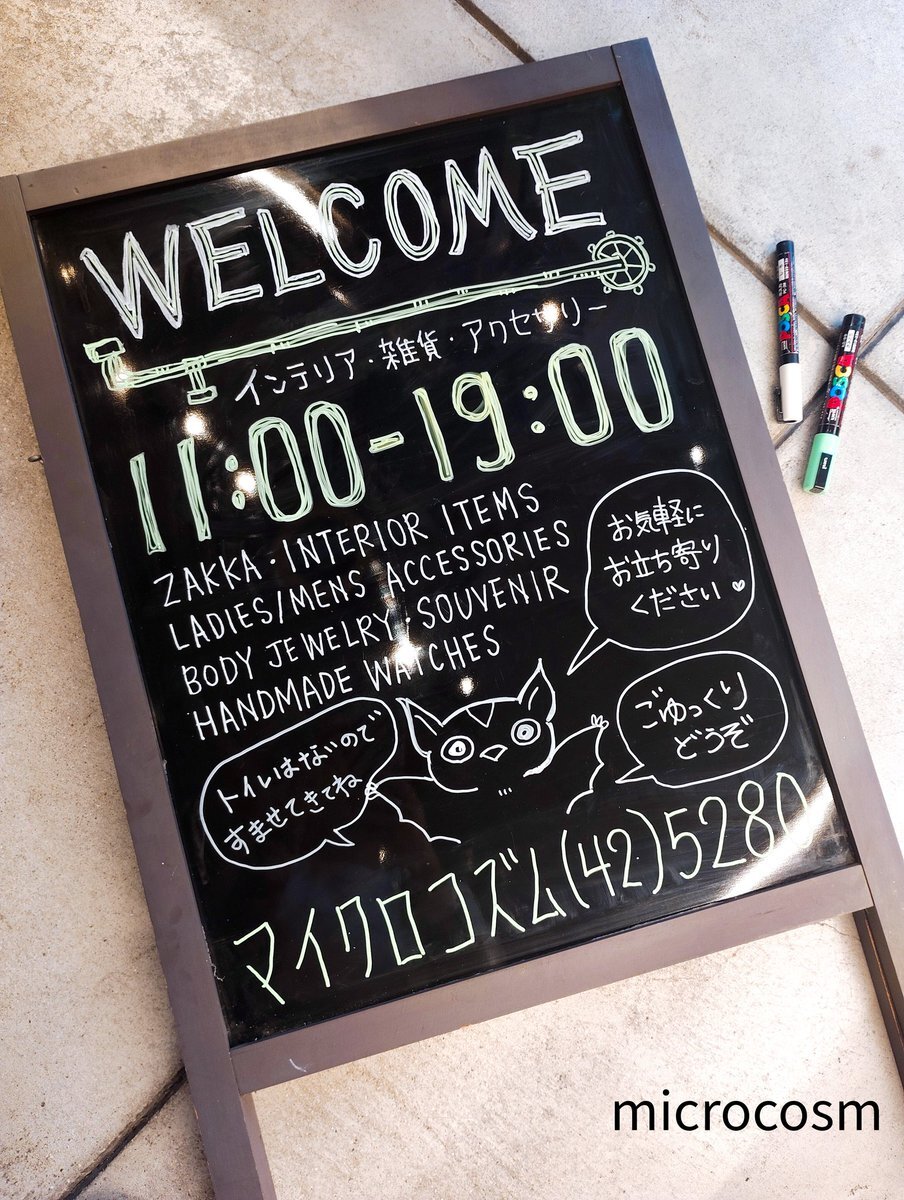 WELCOME
インテリア・雑貨・アクセサリー
11:00-19:00
ZAKKA・INTERIOR ITEMS
LADIES/MENS ACCESSORIES
BODY JEWELRY・SOUVENIR
HANDMADE WATCHES
お気軽に
お立ち寄り
ください♡
ごゆっくり
どうぞ
トイレはないので
すませてきてね
マイクロコズム(42)5280
POSCA
POSCA
microcosm